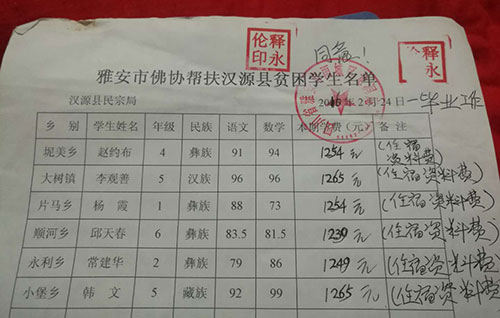 释永伦印
同意！
释永
雅安市佛协帮扶汉源县贫困学生名单
汉源县民宗局 2016年2月24日 一毕业工作
乡 别 学生姓名 年级 民族 语文 数学 本期学费(元) 备 注
坭美乡 赵约布 4 彝族 91 94 1254元 (住宿资料费)
大树镇 李观善 5 汉族 96 96 1265元 (住宿资料费)
片马乡 杨 霞 1 彝族 88 73 1254元 (住宿资料费)
顺河乡 邱天春 6 彝族 83.5 81.5 1239元 (住宿资料费)
永利乡 常建华 2 彝族 79 86 1249元 (住宿资料费)
小堡乡 韩 文 5 藏族 92 99 1265元 (住宿资料费)